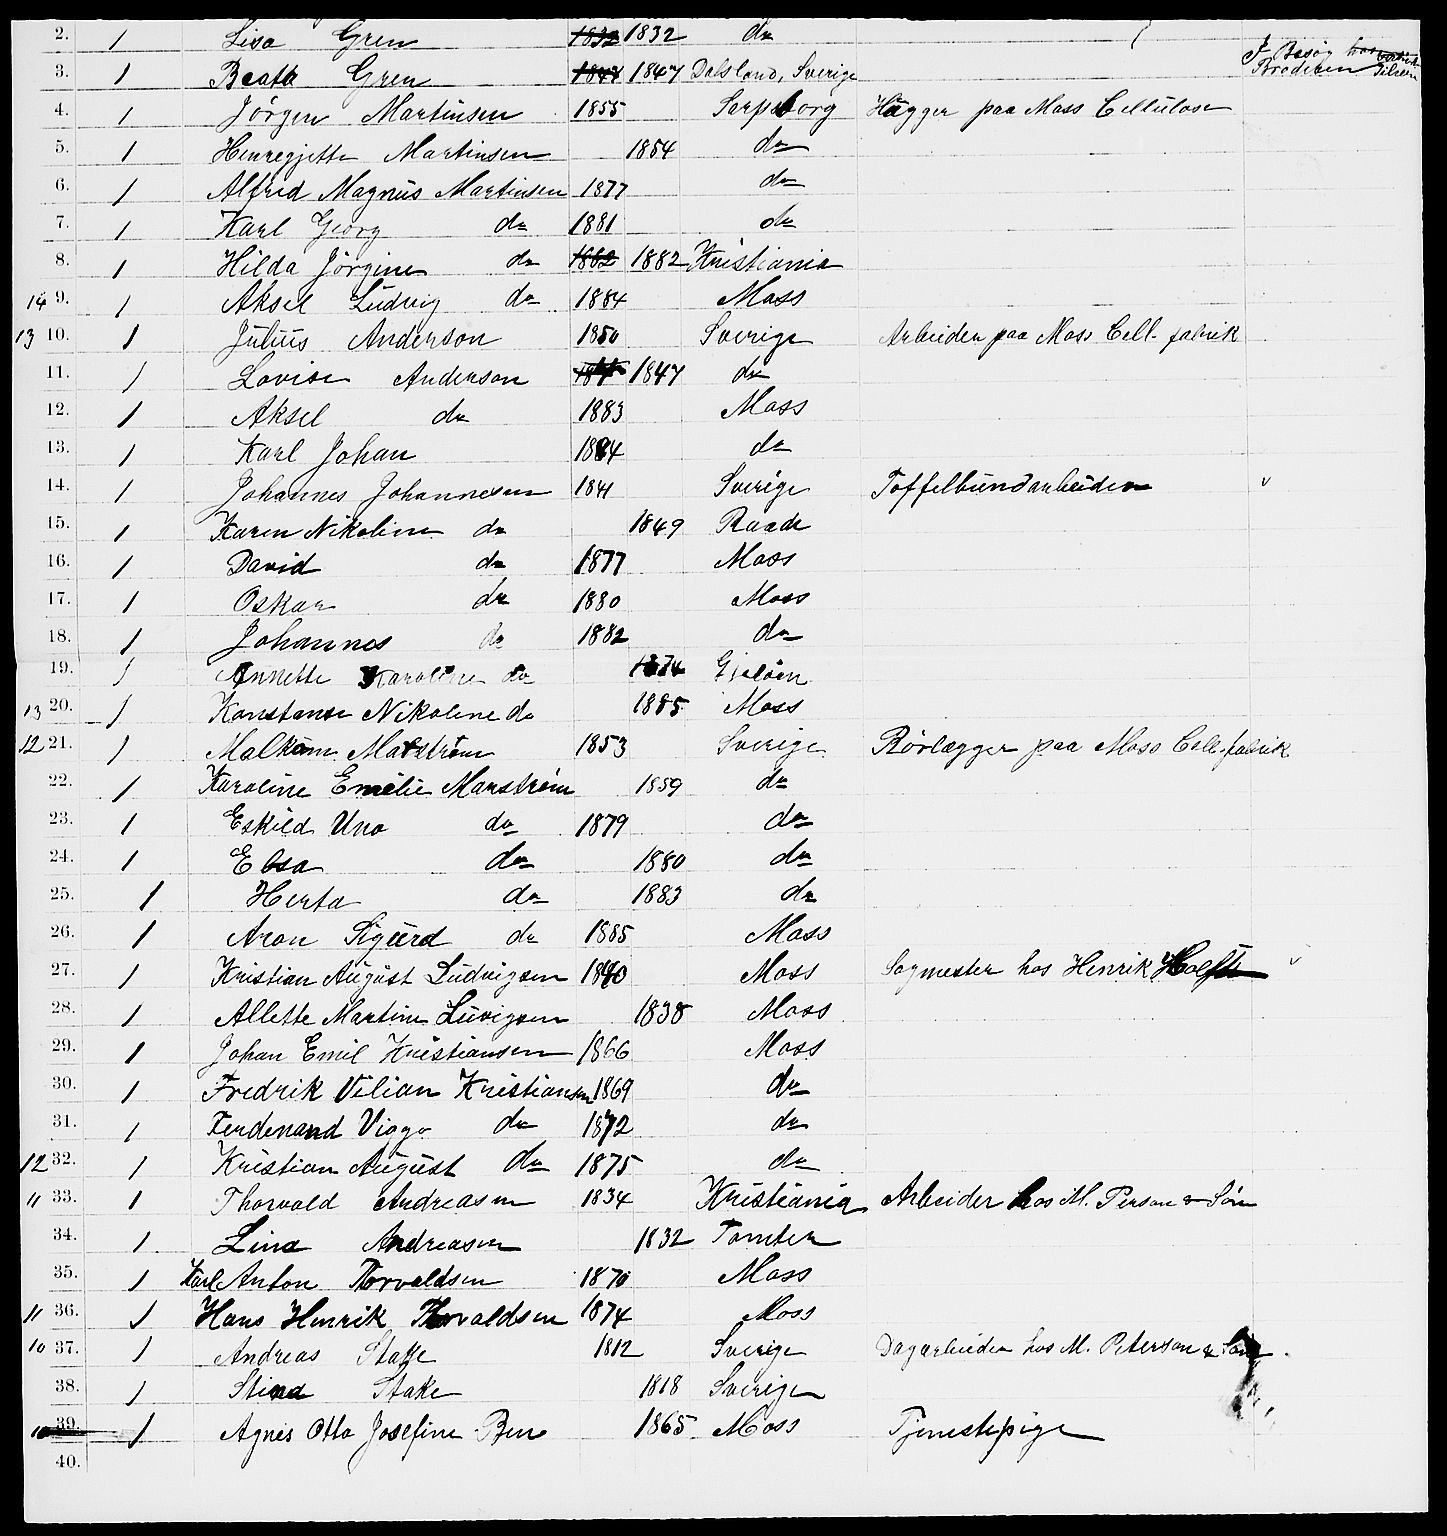 2. 1 Lisa Gren 1832 1832 do
3. 1 Beata Gren 1847 1847 Dalsland, Sverige I Besøg hos Broderen
4. 1 Jørgen Martinsen 1855 Sarpsborg Hugger paa Moss Cellulose
5. 1 Henregjette Martinsen 1854 do
6. 1 Alfred Magnus Martinsen 1877 do
7. 1 Karl Georg do 1881 do
8. 1 Hilda Jørgine do 1882 1882 Kristiania
14 9. 1 Aksel Ludvig do 1884 Moss
13 10. 1 Julius Anderson 1850 Sverige Arbeider paa Moss Cell. fabrik
11. 1 Lovise Anderson 1847 do
12. 1 Aksel do 1883 Moss
13. 1 Karl Johan 1884 do
14. 1 Johannes Johannesen 1841 Sverige Toffelbundarbeider v
15. 1 Karen Nikoline do 1849 Raade
16. 1 David do 1877 Moss
17. 1 Oskar do 1880 Moss
18. 1 Johannes do 1882 do
19. 1 Annette Karoline do 1874 Gjeløen
13 20. 1 Konstanse Nikoline do 1885 Moss
12 21. 1 Malkom 1853 Sverige Rørlægger paa Moss Cell. fabrik
22. 1 Karoline Emelie Marstrøm 1859 do
23. 1 Eskild Uno do 1879 do
24. 1 Elsa do 1880 do
25. 1 Herta do 1883 do
26. 1 Aron Sigurd do 1885 Moss
27. 1 Kristian August Ludvigsen 1840 Moss Sagmester hos Henrik v
28. 1 Allette Martine Luvigsen 1838 Moss
29. 1 Johan Emil Kristiansen 1866 Moss
30. 1 Fredrik Vilian Kristiansen 1869 do
31. 1 Ferdenand Viggo do 1872 do
12 32. 1 Kristian August do 1875 do
11 33. 1 Thorvald Andreasen 1834 Kristiania Arbeider hos M. Person & Søn
34. 1 Lina Andreasen 1832 Tomter
35. 1 Karl Anton Torvaldsen 1870 Moss
11 36. 1 Hans Henrik Thorvaldsen 1874 Moss
10 37. 1 Andreas Stake 1812 Sverige Dagarbeider hos M. Peterson & Søn
38. 1 Stina Stake 1818 Sverige
10 39. 1 Agnes Otto Josefine Ben 1865 Moss Tjenestepige
40.